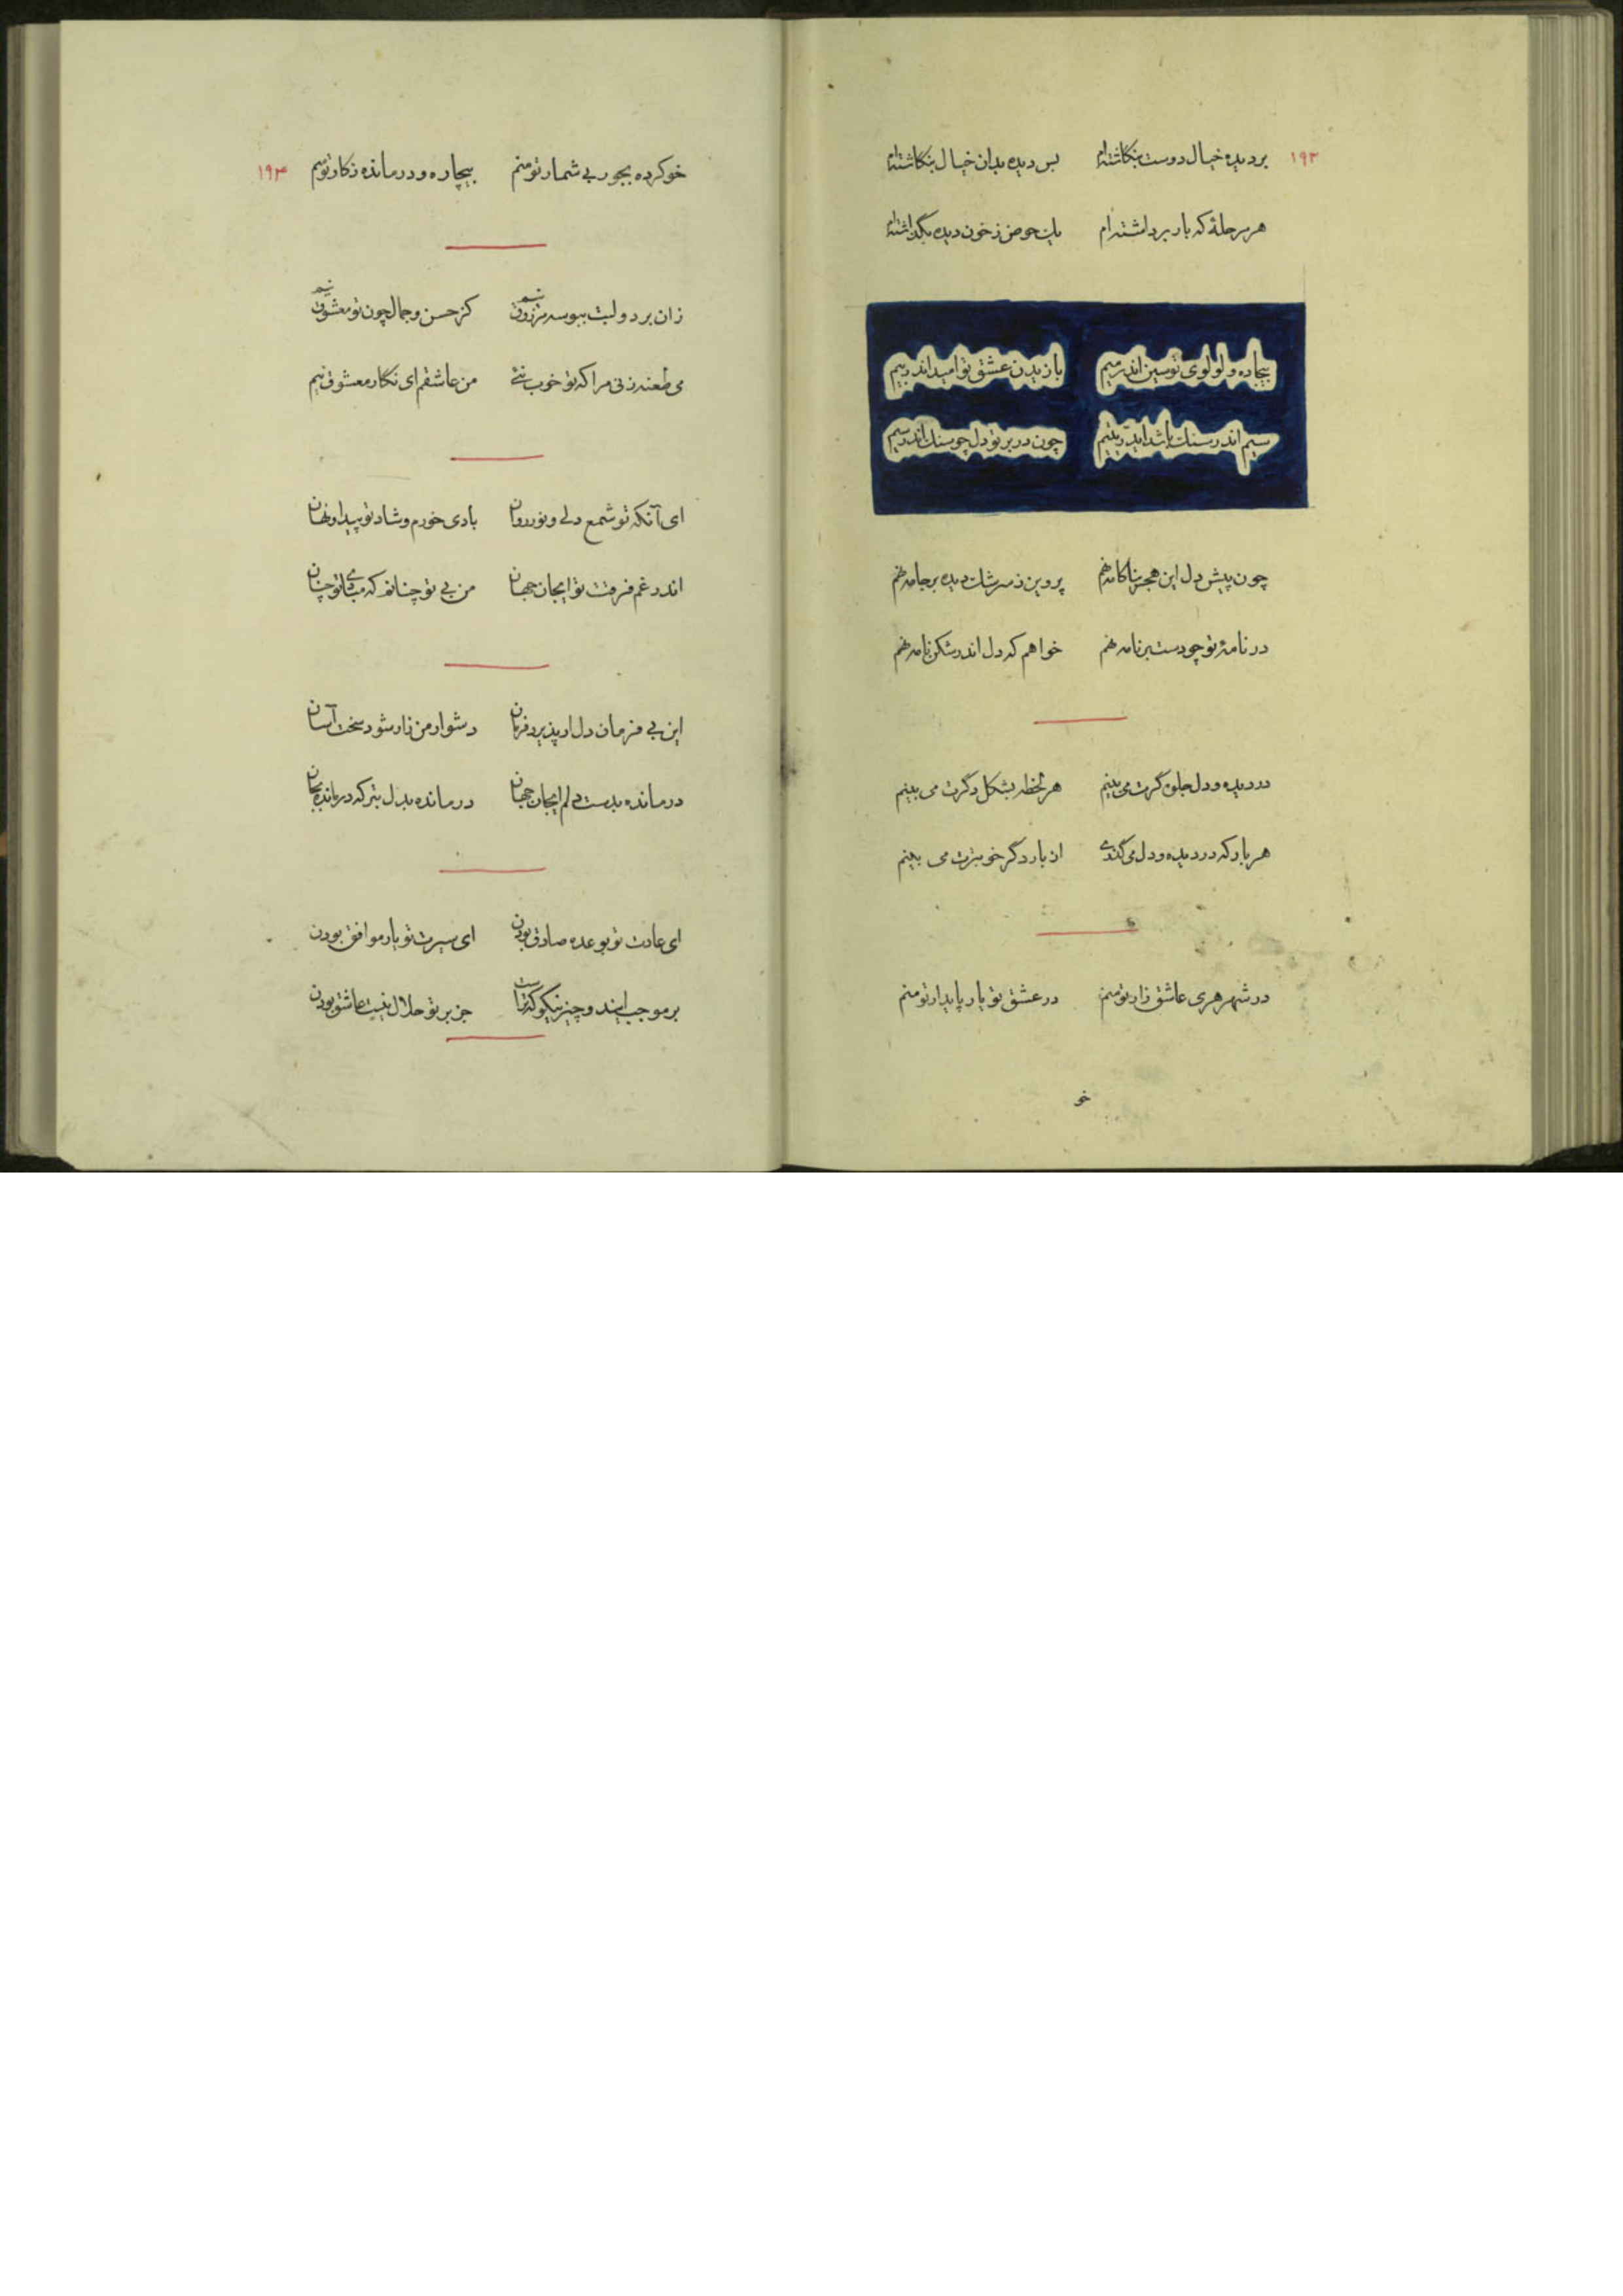 ۱۹۳
بر دیده خیال دوست بنگاشته‌ام بس دیده بدان خیال بنگاشته‌ام
هر مرحلهٔ که بار برداشته‌ام یک حوض ز خون دیده بگذاشته‌ام
بیجاده و لولوی تو سین اندر میم با زیدن عشق تو امید اندر بیم
سیم اندر سنک باشد ای در یتیم چون در بر تو دل چو سنک اندر سیم
چون پیش دل این هجر بناکامه نهم پروین ز سرشک دیده بر جامه نهم
در نامهٔ تو چو دست بر نامه نهم خواهم که دل اندر شکن نامه نهم
در دیده و دل جلوه گرت می بینم هر لحظه بشکل دگرت می بینم
هر بار که در دیده و دل می گذری از بار دگر خوبترت می بینم
در شهر هری عاشق زار تو منم در عشق تو یار پایدار تو منم
خو
۱۹۴
خو کرده بجور بی شمار تو منم بیچاره و درمانده ز کار تو منم
زان بر دو لبت ببوسه مرزوق نیم کز حسن و جمال چون تو معشوق نیم
می طعنه زنی مرا که تو خوب نئی من عاشقم ای نکار معشوق نیم
ای آنکه تو شمع دلی و نور روان بادی خورم و شاد تو پیدا و نهان
اندر غم فرقت تو ایجان جهان من بی تو چنانم که مبادی تو چنان
این بی فرمان دل ار پذیرد فرمان دشوار من زار شود سخت آسان
درمانده بدست دلم ایجان جهان درمانده بدل بتر که درمانده بجان
ای عادت تو بوعده صادق بودن ای سیرت تو یار موافق بودن
بر موجب این دو چیز نیکو که تراست جز بر تو حلال نیست عاشق بودن